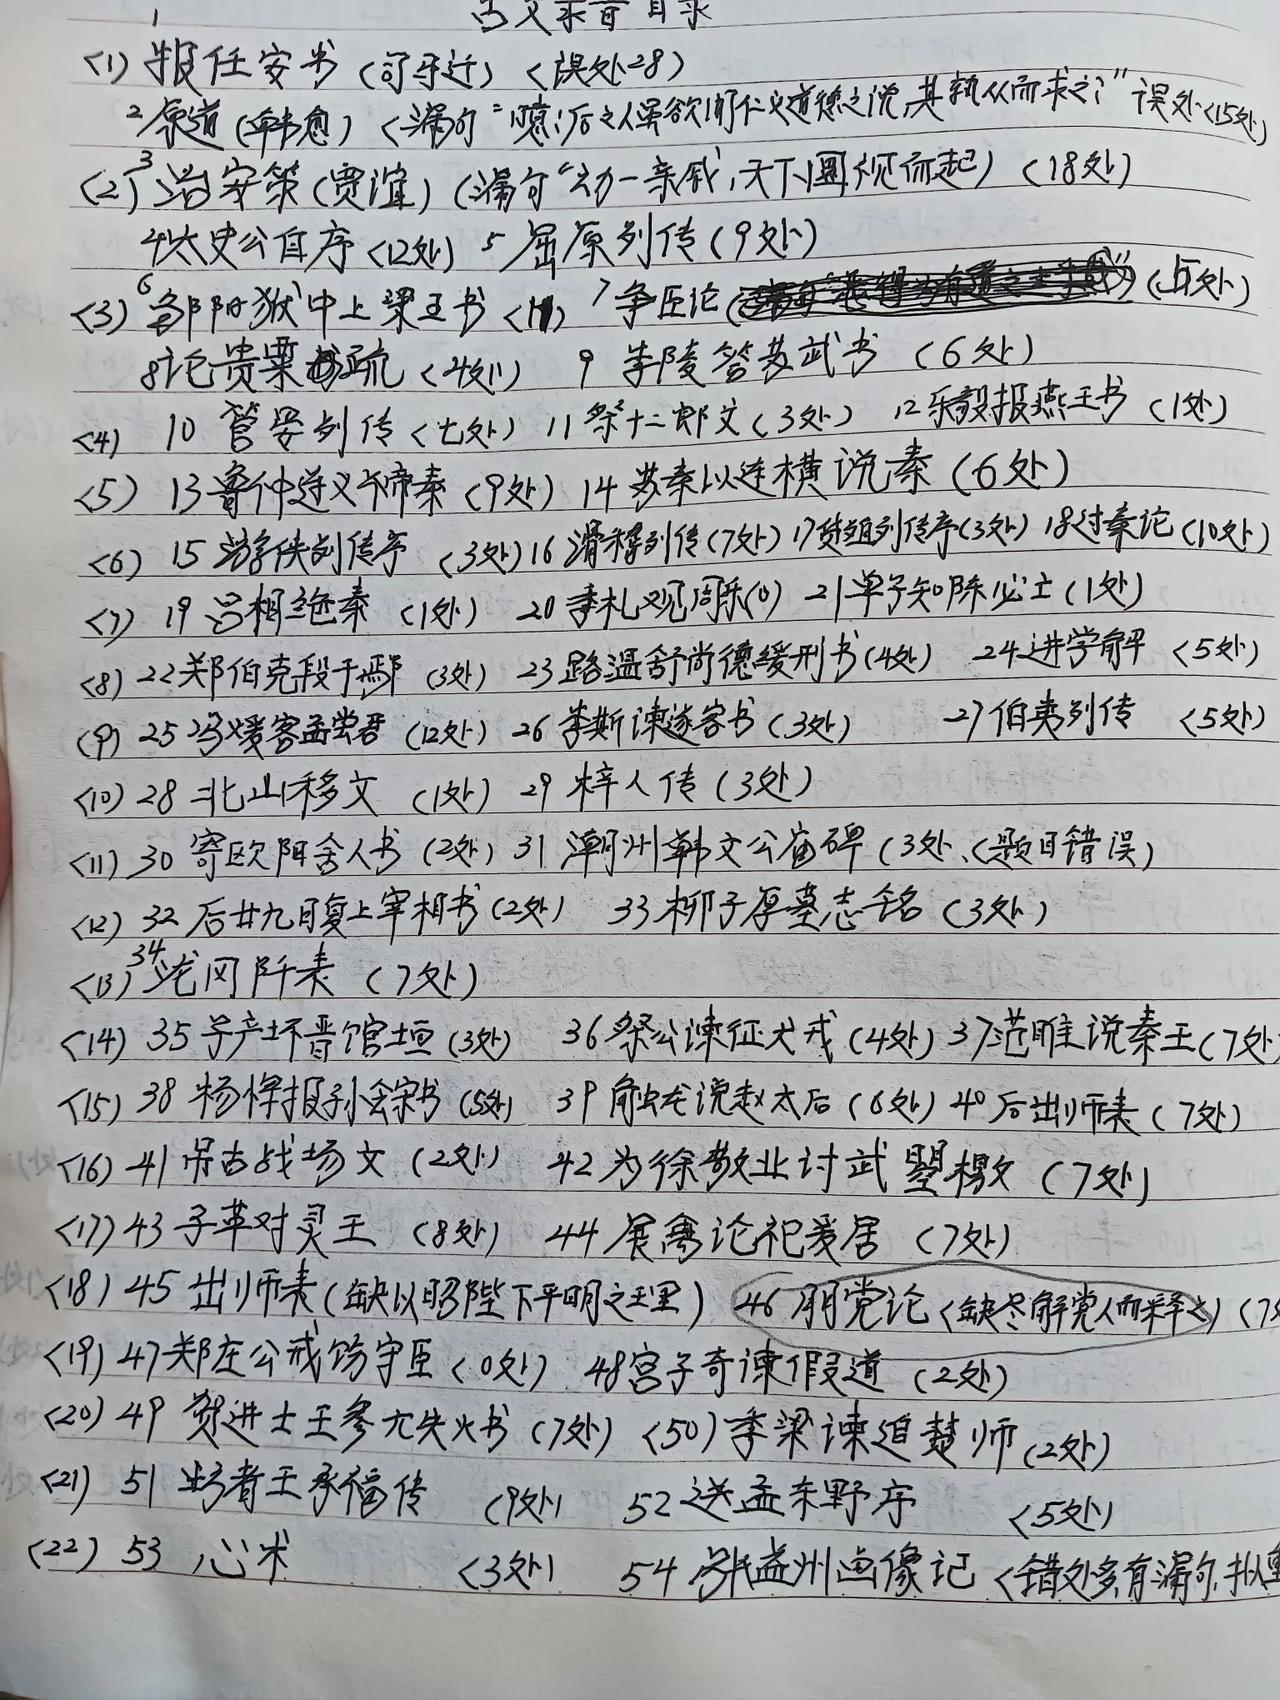 古文录音目录
<1> 1 报任安书 (司马迁) <误处28>
2 原道 (韩愈) <漏句"噫!后之人虽欲闻仁义道德之说,其孰从而求之?" 误处<15处)
<2> 3 治安策 (贾谊) (漏句"动一亲戚,天下圜视而起) (18处)
4 太史公自序 <12处) 5 屈原列传 (9处)
<3) 6 邹阳狱中上梁王书 <11) 7 争臣论 (5处)
8 论贵粟疏 <4处) 9 李陵答苏武书 (6处)
<4) 10 管晏列传 <七处) 11 祭十二郎文 (3处) 12 乐毅报燕王书 (1处)
<5) 13 鲁仲连义不帝秦 (9处) 14 苏秦以连横说秦 (6处)
<6) 15 游侠列传序 (3处) 16 滑稽列传 (7处) 17 货殖列传序 (3处) 18 过秦论 (10处)
<7) 19 吕相绝秦 (1处) 20 季札观周乐 (0) 21 单子知陈必亡 (1处)
<8) 22 郑伯克段于鄢 (3处) 23 路温舒尚德缓刑书 (4处) 24 进学解 <5处)
(9) 25 冯煖客孟尝君 (12处) 26 李斯谏逐客书 (3处) 27 伯夷列传 <5处)
<10) 28 北山移文 (1处) 29 梓人传 (3处)
<11) 30 寄欧阳舍人书 (2处) 31 潮州韩文公庙碑 (3处、<题目错误)
<12) 32 后廿九日复上宰相书 (2处) 33 柳子厚墓志铭 (3处)
<13) 34 泷冈阡表 (7处)
<14) 35 子产坏晋馆垣 (3处) 36 祭公谏征犬戎 (4处) 37 范雎说秦王 (7处
<15) 38 杨恽报孙会宗书 (5处) 39 触龙说赵太后 (6处) 40 后出师表 (7处)
<16) 41 吊古战场文 (2处) 42 为徐敬业讨武曌檄文 (7处)
<17) 43 子革对灵王 (8处) 44 展禽论祀爰居 (7处)
<18) 45 出师表 (缺以昭陛下平明之理) 46 朋党论 <缺尽解党人而释之) (7处
<19) 47 郑庄公戒饬守臣 <0处) 48 宫子奇谏假道 (2处)
<20) 49 贺进士王参元失火书 (7处) <50) 季梁谏追楚师 (2处)
<21) 51 圬者王承福传 (9处) 52 送孟东野序 <5处)
<22) 53 心术 <3处) 54 张益州画像记 <错处多,有漏句,拟重